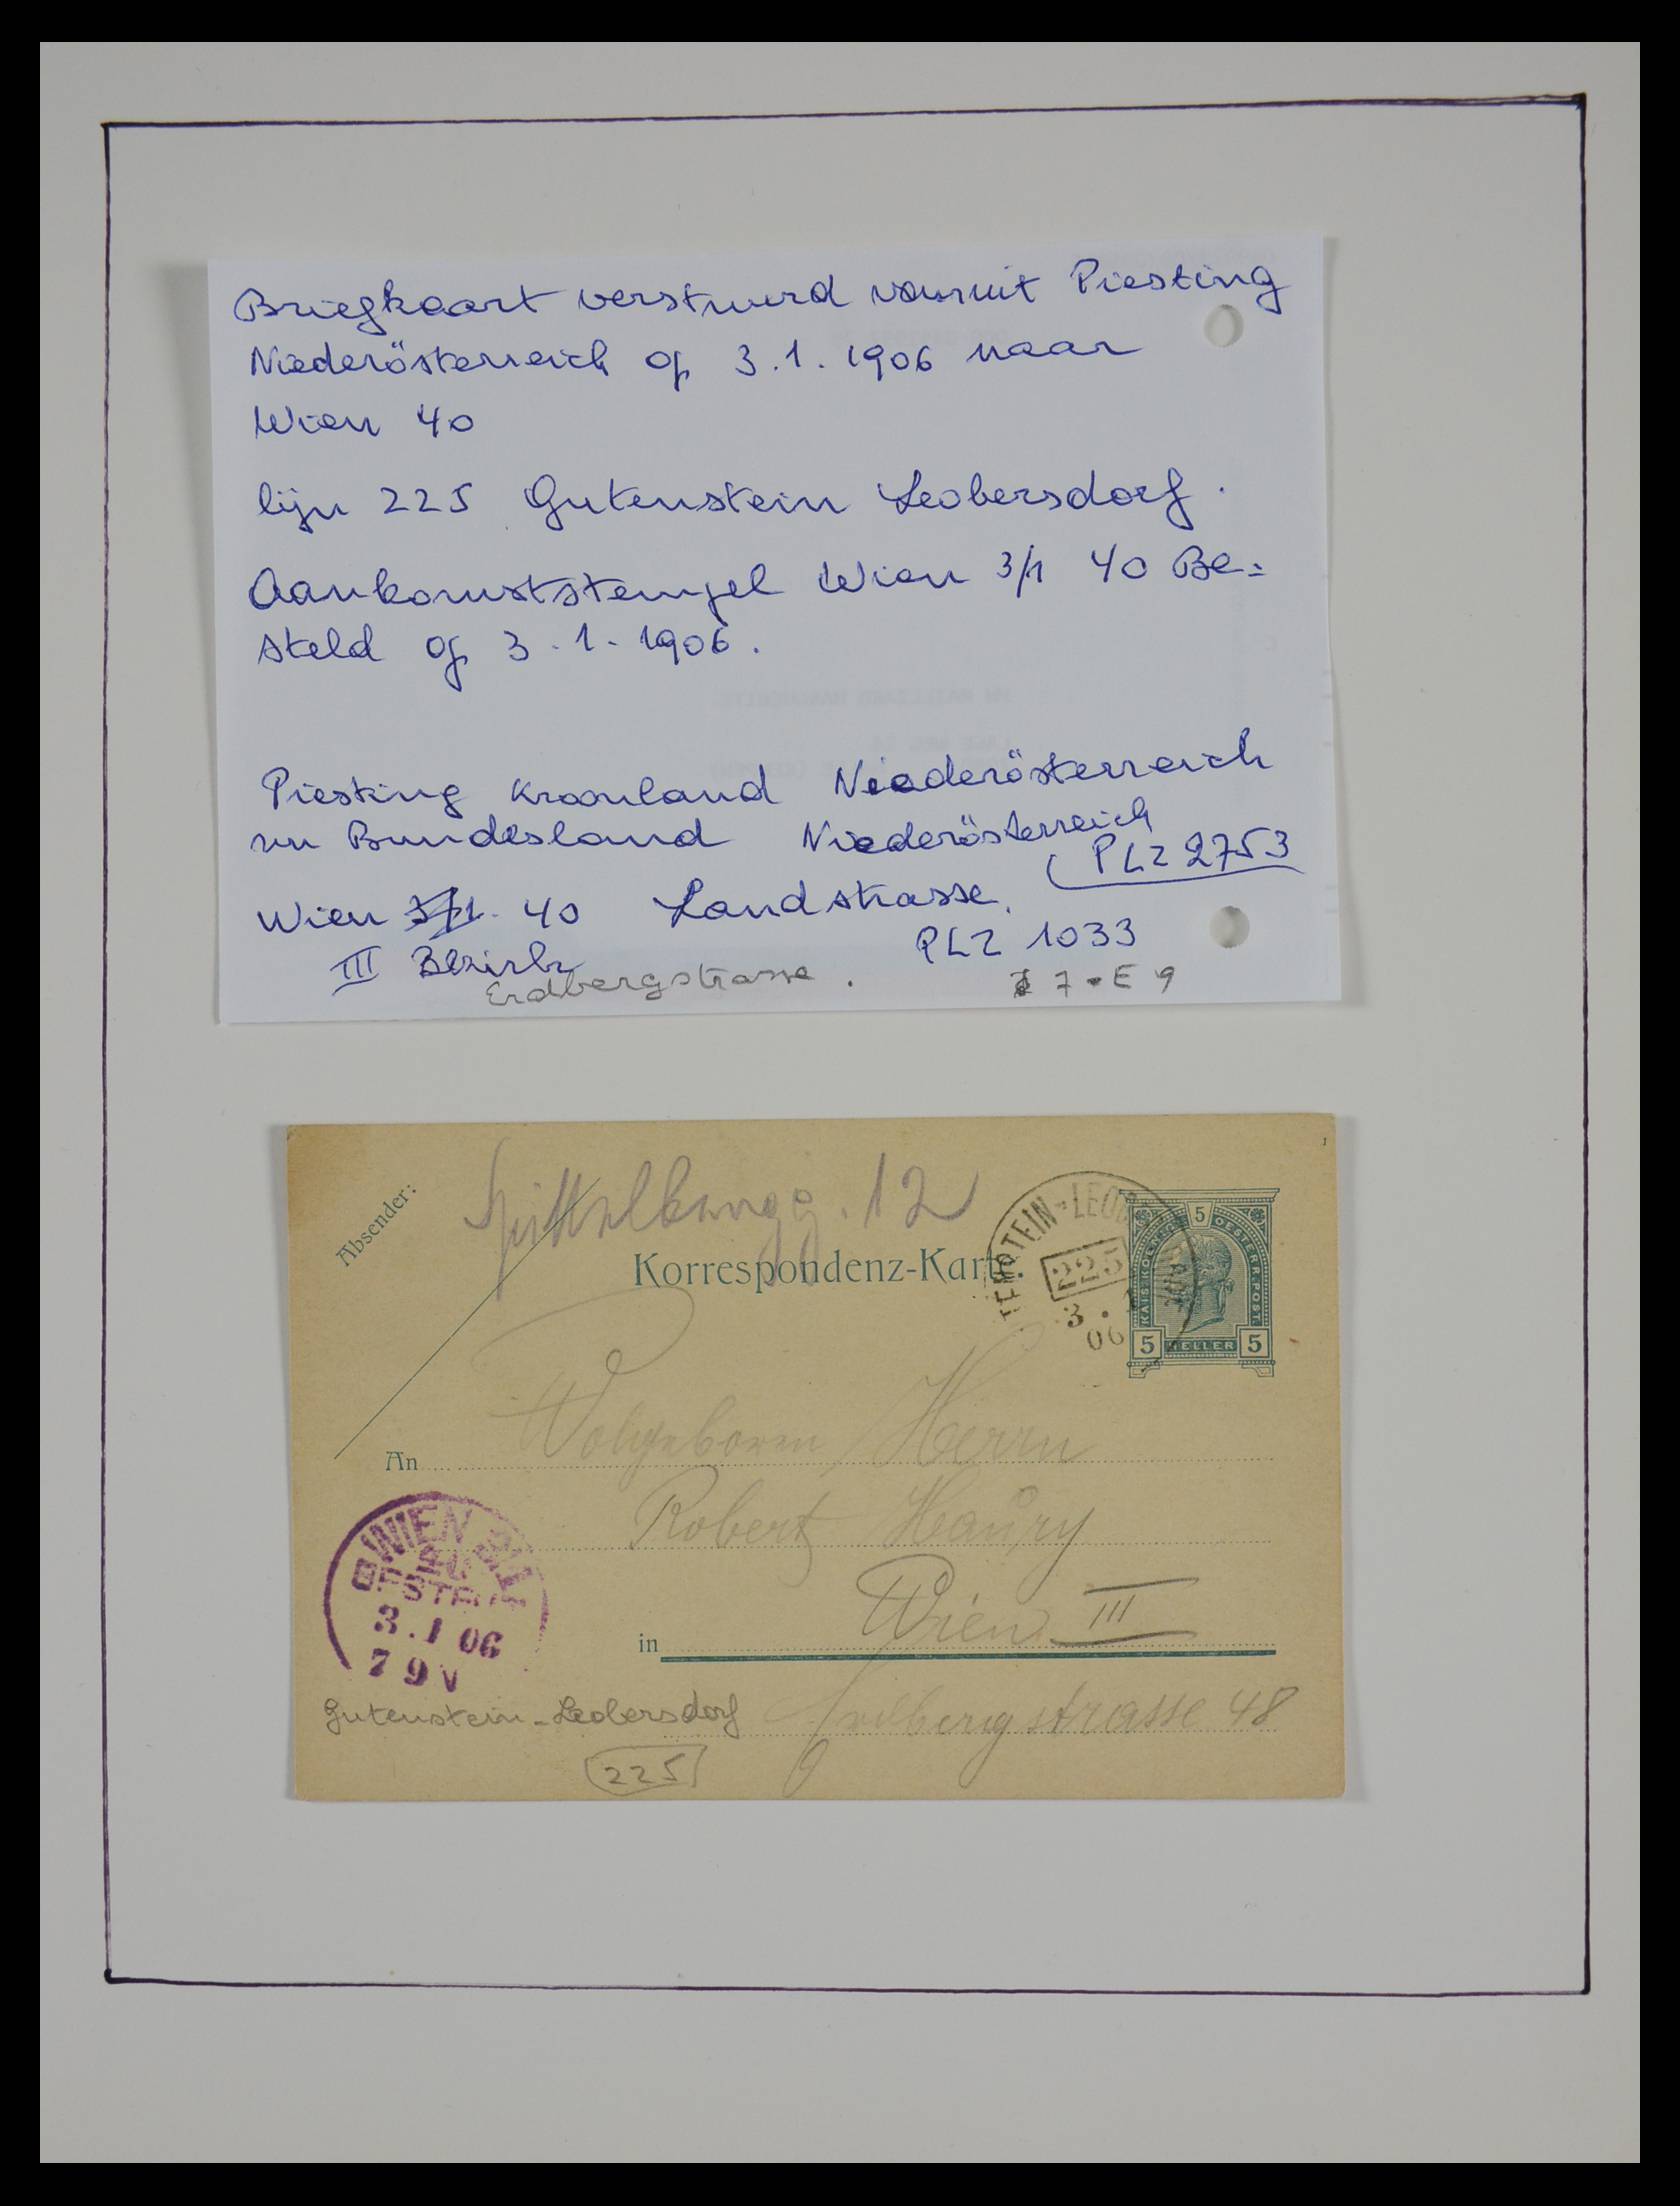 Briefkaart verstuurd vanuit Piesting
Niederösterreich op 3.1.1906 naar
Wien 40
lijn 225 Gutenstein Leobersdorf.
Aankomststempel Wien 3/1 40 Be=
steld op 3.1.1906.
Piesting Kroonland Niederösterreich
nu Bundesland Niederösterreich
(PLZ 2753
Wien 3/1 40 Landstrasse.
III Bezirk PLZ 1033
Erdbergstrasse. 7-E9
1
Absender:
Spittelbergg. 12
Korrespondenz-Karte.
TENSTEIN-LEOB
225
3.1
06
5
KAIS. KÖNIGL. OESTERR. POST
5 HELLER 5
Wolgeboren Herrn
An
Robert Haury
WIEN 3/1
40
BESTELLT
3.1 06
7 9 V
Wien III
in
Gutenstein-Leobersdorf
Erdbergstrasse 48
225